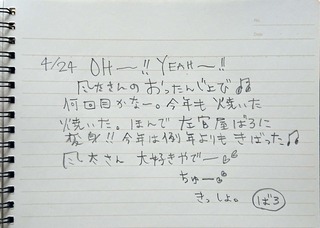 4/24 OH〜!! YEAH〜!!
風太さんのおったんじょび♪♪
何回目かなー。今年も焼いた
焼いた。ほんで左官屋ばろに
変身!! 今年は例年よりもきばった♪
風太さん 大好きやでー
ちゅー
きっしょ。 ばろ